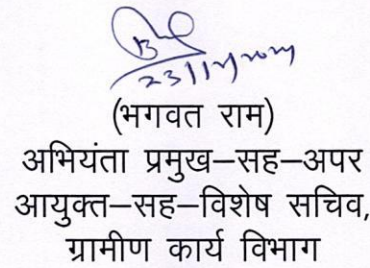 23/12/2024
(भगवत राम)
अभियंता प्रमुख–सह–अपर
आयुक्त–सह–विशेष सचिव,
ग्रामीण कार्य विभाग